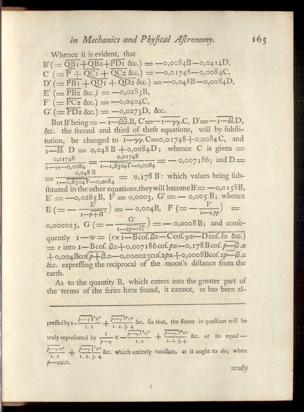 in Mechanics and Phyſical Aſtronomy. 165
Whence it is evident, that
B′(= QB1+QB2+PD1 &c.) = −0,0084B−0,0414D,
C′ (= P + QC1 + QC2 &c.) = −0,01748−0,0084C,
D′(= PB1 +QD1 +QD2 &c.) = −0,048B−0,0084D,
E′ (= PB2 &c.) = −0,0285B,
F′ (= PC2 &c.) = −0,0404C,
G′ (= PD2 &c.) = −0,0273D, &c.
But B′ being = −
&c. the ſecond and third of theſe equations, will by ſubſti-
tution, be changed to C=0,01748+0,0084C, and
D = 0,048 B + 0,0084D; whence C is given =
0,01748 0,01748
= = 0,007186; and D =
0,048 B
= 0,178 B: which values being ſub-
ſtituted in the other equations, they will become B′ = −0,0158B,
E′ = −0,0285B, F′ = 0,0003, G′ = − 0,005 B; whence
E (= − ) = − 0,004B, F (= − ) =
0,000023, G (= − ) = − 0,0008 B; and conſe-
quently
= r into 1−Bcoſ.βz+0,007186coſ.pz−0,178Bcoſ.p−β.z
+0,004Bcoſ.p+β.z−0,000023coſ.2pz+0,0008Bcoſ.2p−β.z
&c. expreſſing the reciprocal of the moon's diſtance from the
earth.
As to the quantity B, which enters into the greater part of
the terms of the ſeries here found, it cannot, as has been al-
preſſed by 1− + &c. So that, the fluent in queſtion will be
truly repreſented by × + &c. or its equal −
+ &c. which entirely vaniſhes, as it ought to do, when
ready